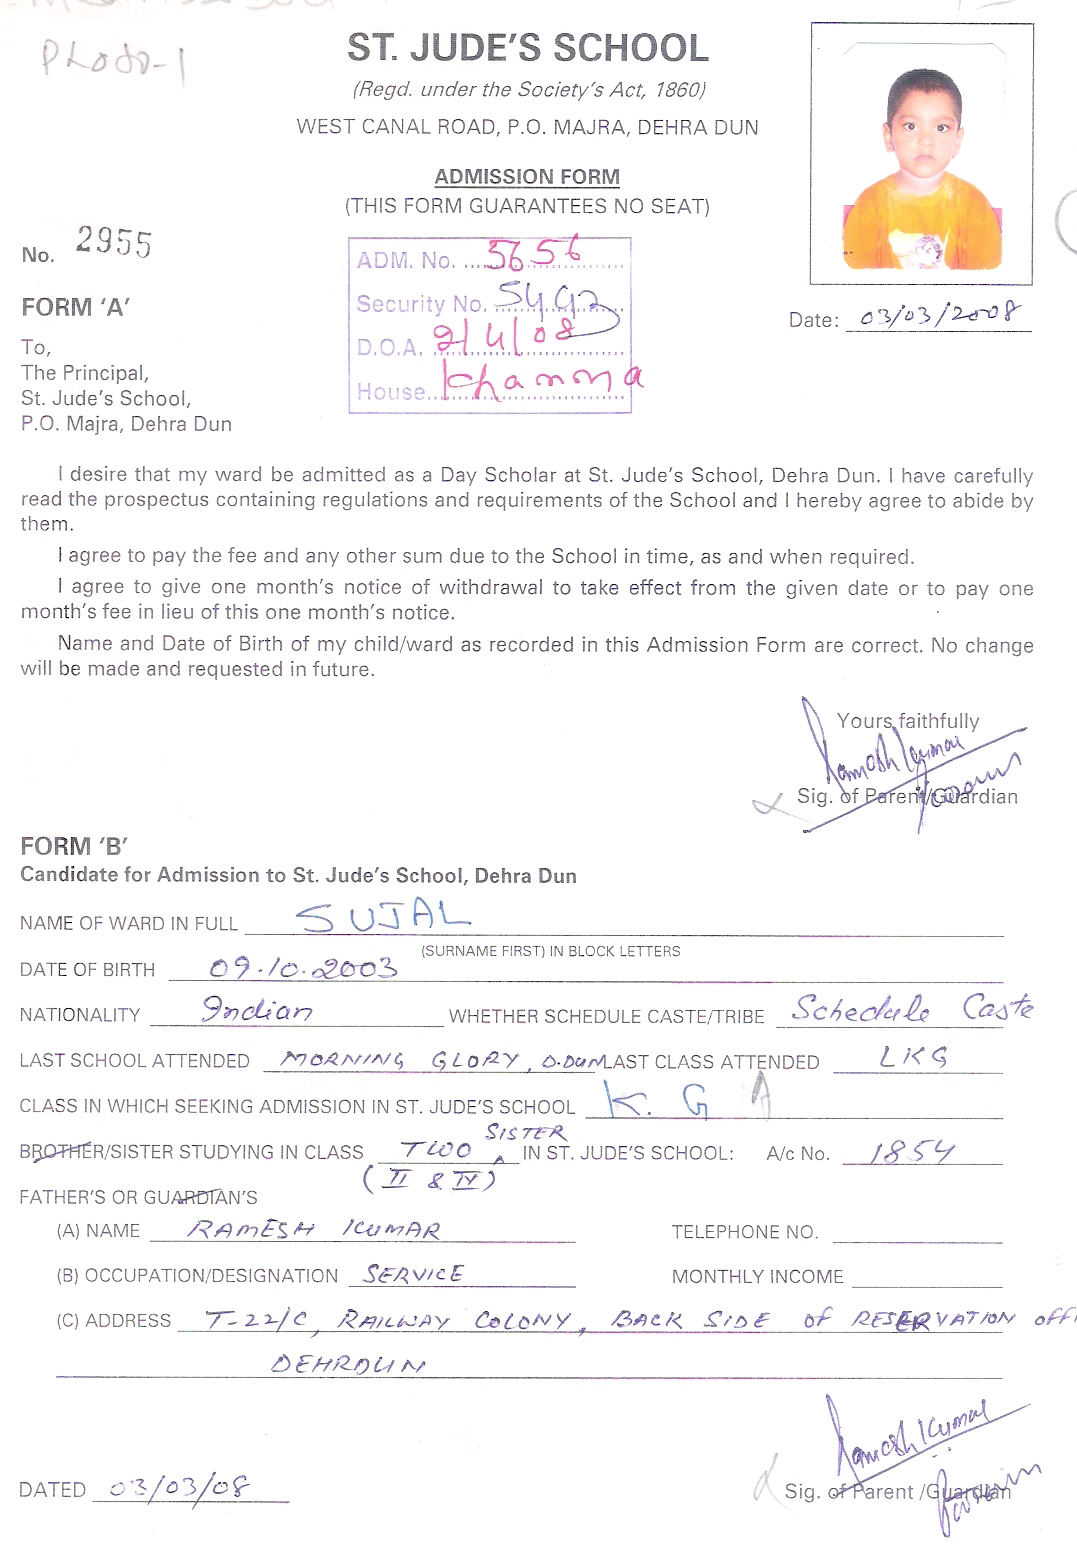 ST. JUDE'S SCHOOL
(Regd. under the Society's Act, 1860)
WEST CANAL ROAD, P.O. MAJRA, DEHRA DUN
ADMISSION FORM
(THIS FORM GUARANTEES NO SEAT)
No. 2955
ADM. No. 5656
Security No. 5492
D.O.A. 2/4/08
House Khanna
Date: 03/03/2008
FORM 'A'
To,
The Principal,
St. Jude's School,
P.O. Majra, Dehra Dun
I desire that my ward be admitted as a Day Scholar at St. Jude's School, Dehra Dun. I have carefully
read the prospectus containing regulations and requirements of the School and I hereby agree to abide by
them.
I agree to pay the fee and any other sum due to the School in time, as and when required.
I agree to give one month's notice of withdrawal to take effect from the given date or to pay one
month's fee in lieu of this one month's notice.
Name and Date of Birth of my child/ward as recorded in this Admission Form are correct. No change
will be made and requested in future.
Yours faithfully
Ramesh Kumar
Sig. of Parent/Guardian
FORM 'B'
Candidate for Admission to St. Jude's School, Dehra Dun
NAME OF WARD IN FULL SUJAL
(SURNAME FIRST) IN BLOCK LETTERS
DATE OF BIRTH 09.10.2003
NATIONALITY Indian WHETHER SCHEDULE CASTE/TRIBE Schedule Caste
LAST SCHOOL ATTENDED MORNING GLORY, D.DUN LAST CLASS ATTENDED LKG
CLASS IN WHICH SEEKING ADMISSION IN ST. JUDE'S SCHOOL K.G A
SISTER
BROTHER/SISTER STUDYING IN CLASS TWO IN ST. JUDE'S SCHOOL: A/c No. 1854
(II & IV)
FATHER'S OR GUARDIAN'S
(A) NAME RAMESH KUMAR TELEPHONE NO.
(B) OCCUPATION/DESIGNATION SERVICE MONTHLY INCOME
(C) ADDRESS T-22/C, RAILWAY COLONY, BACK SIDE of RESERVATION offi
DEHRDUN
Ramesh Kumar
DATED 03/03/08
Sig. of Parent /Guardian